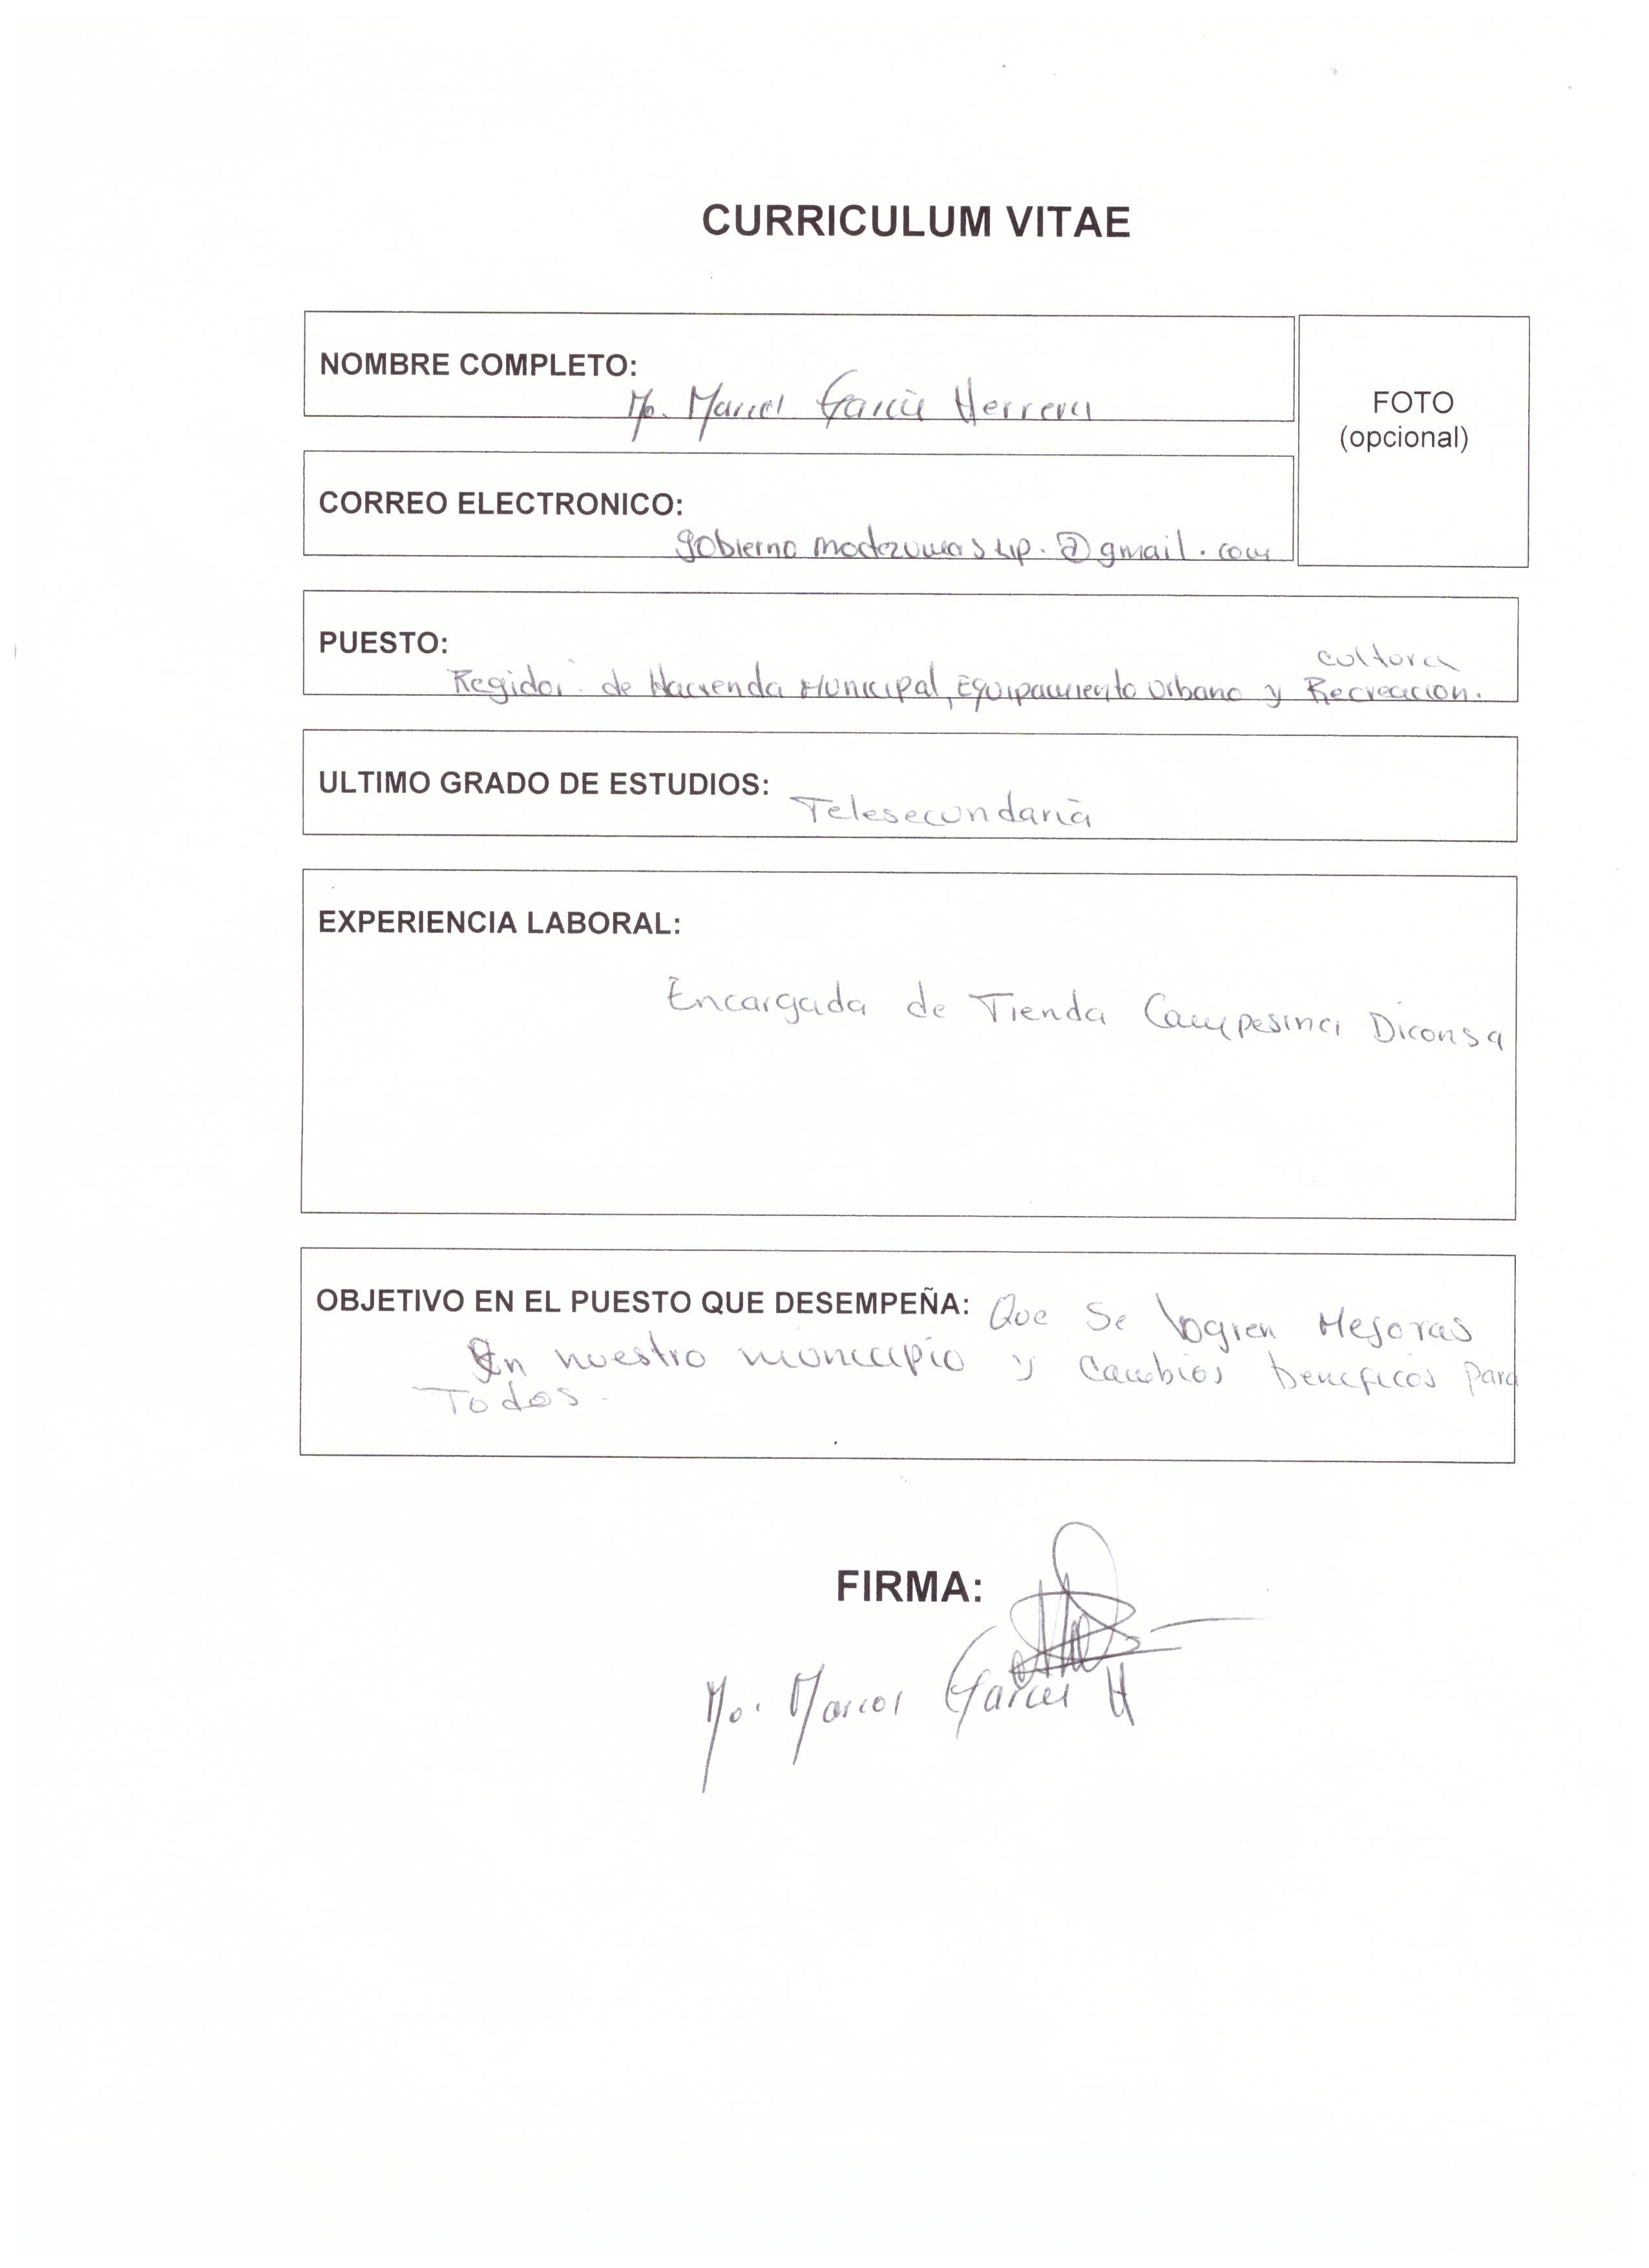 CURRICULUM VITAE
NOMBRE COMPLETO:
Ma. García Herrera
FOTO
(opcional)
CORREO ELECTRONICO:
gobierno @gmail.com
PUESTO:
cultura
Regidor de Hacienda Municipal, Equipamiento Urbano y Recreación.
ULTIMO GRADO DE ESTUDIOS:
Telesecundaria
EXPERIENCIA LABORAL:
Encargada de Tienda Campesina Diconsa
OBJETIVO EN EL PUESTO QUE DESEMPEÑA: Que Se logren Mejoras
En nuestro municipio y Cambios beneficos Para
Todos.
FIRMA:
Ma. García H